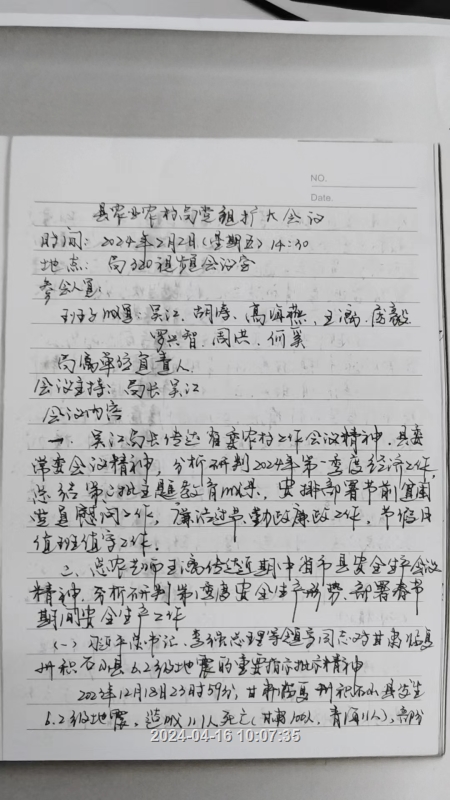 NO.
Date.
县农业农村局党组扩大会议
时间：2024年2月2日（星期五）14:30
地点：局320视频会议室
参会人员：
班子成员：吴江、胡涛、高 燕、王 、庞毅
罗 智、周洪、何奚
局属单位负责人
会议主持：局长吴江
会议内容
一、吴江局长传达省委农村工作会议精神、县委
常委会议精神，分析研判2024年第一季度经济工作，
总结第二批主题教育成果，安排部署节前 困
党员慰问工作，廉洁过节、勤政廉政工作，节假日
值班值守工作。
二、总农艺师王 传达近期中省市县安全生产会议
精神，分析研判第1季度安全生产形势，部署春节
期间安全生产工作
（一）习近平总书记、李强总理等领导同志对甘肃临夏
州积石山县6.2级地震的重要指示批示精神
2023年12月18日23时59分，甘肃临夏州积石山县发生
6.2级地震，造成111人死亡（甘肃100人，青海11人），部分
2024-04-16 10:07:35